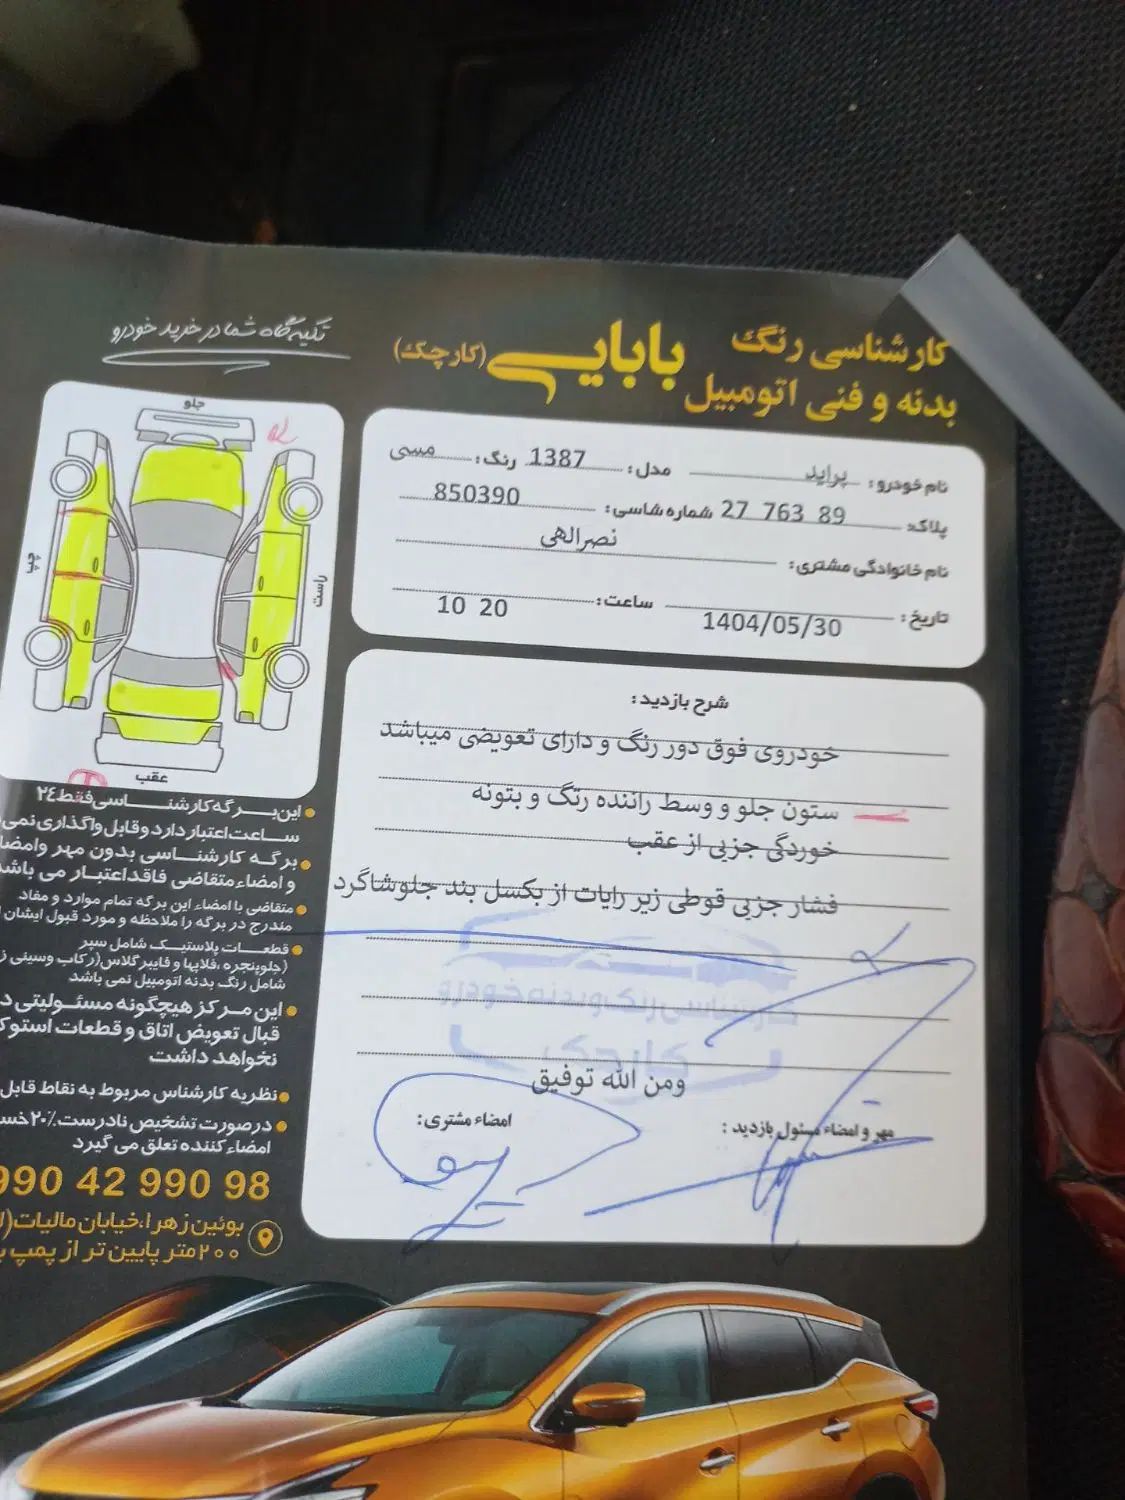 کارشناسی رنگ
بدنه و فنی اتومبیل
بابایی (کارچک)
تکیه گاه شما در خرید خودرو
نام خودرو: پراید مدل: 1387 رنگ: مسی
پلاک: 89 763 27 شماره شاسی: 850390
نام خانوادگی مشتری: نصرالهی
تاریخ: 1404/05/30 ساعت: 20 10
جلو
چپ
راست
عقب
شرح بازدید:
خودروی فوق دور رنگ و دارای تعویضی میباشد
ستون جلو و وسط راننده رتگ و بتونه
خوردگی جزیی از عقب
فشار جزیی قوطی زیر رایات از بکسل بند جلوشاگرد
کارشناسی رنگ و بدنه خودرو
کارچک
ومن الله توفیق
مهر و امضاء مسئول بازدید:
امضاء مشتری:
این برگه کارشناسی فقط ۲٤
ساعت اعتبار دارد و قابل واگذاری نمی
برگه کارشناسی بدون مهر وامضا
و امضاء متقاضی فاقد اعتبار می باشد
متقاضی با امضاء این برگه تمام موارد و مفاد
مندرج در برگه را ملاحظه و مورد قبول ایشان
قطعات پلاستیک شامل سپر
(جلوپنجره ،فلاپها و فایبرگلاس(رکاب وسینی
شامل رنگ بدنه اتومبیل نمی باشد
این مرکز هیچگونه مسئولیتی
قبال تعویض اتاق و قطعات استوک
نخواهد داشت
نظریه کارشناس مربوط به نقاط قابل
درصورت تشخیص نادرست ۲۰٪
امضاء کننده تعلق می گیرد
990 42 990 98
بوئین زهرا،خیابان مالیات
۲۰۰متر پایین تر از پمپ